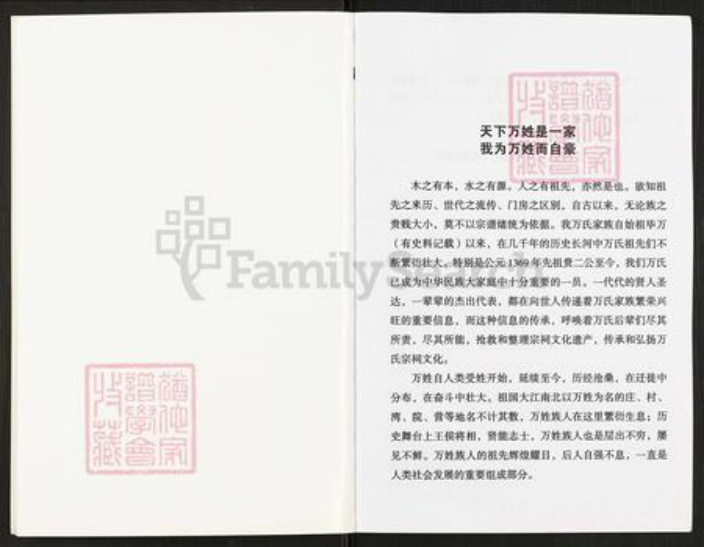 天下万姓是一家
我为万姓而自豪
木之有本，水之有源，人之有祖先，亦然是也。欲知祖
先之来历、世代之流传、门房之区别，自古以来，无论族之
贵贱大小，莫不以宗谱绪统为依据。我万氏家族自始祖毕万
（有史料记载）以来，在几千年的历史长河中万氏祖先们不
断繁衍壮大。特别是公元1369年先祖贵二公至今，我们万氏
已成为中华民族大家庭中十分重要的一员，一代代的贤人圣
达，一辈辈的杰出代表，都在向世人传递着万氏家族繁荣兴
旺的重要信息，而这种信息的传承，呼唤着万氏后辈们尽其
所责，尽其所能，抢救和整理宗祠文化遗产，传承和弘扬万
氏宗祠文化。
万姓自人类受姓开始，延续至今，历经沧桑，在迁徙中
分布，在奋斗中壮大。祖国大江南北以万姓为名的庄、村、
湾、院、营等地名不计其数，万姓族人在这里繁衍生息；历
史舞台上王侯将相，贤能志士，万姓族人也是层出不穷，屡
见不鲜。万姓族人的祖先辉煌耀目，后人自强不息，一直是
人类社会发展的重要组成部分。
FamilySearch